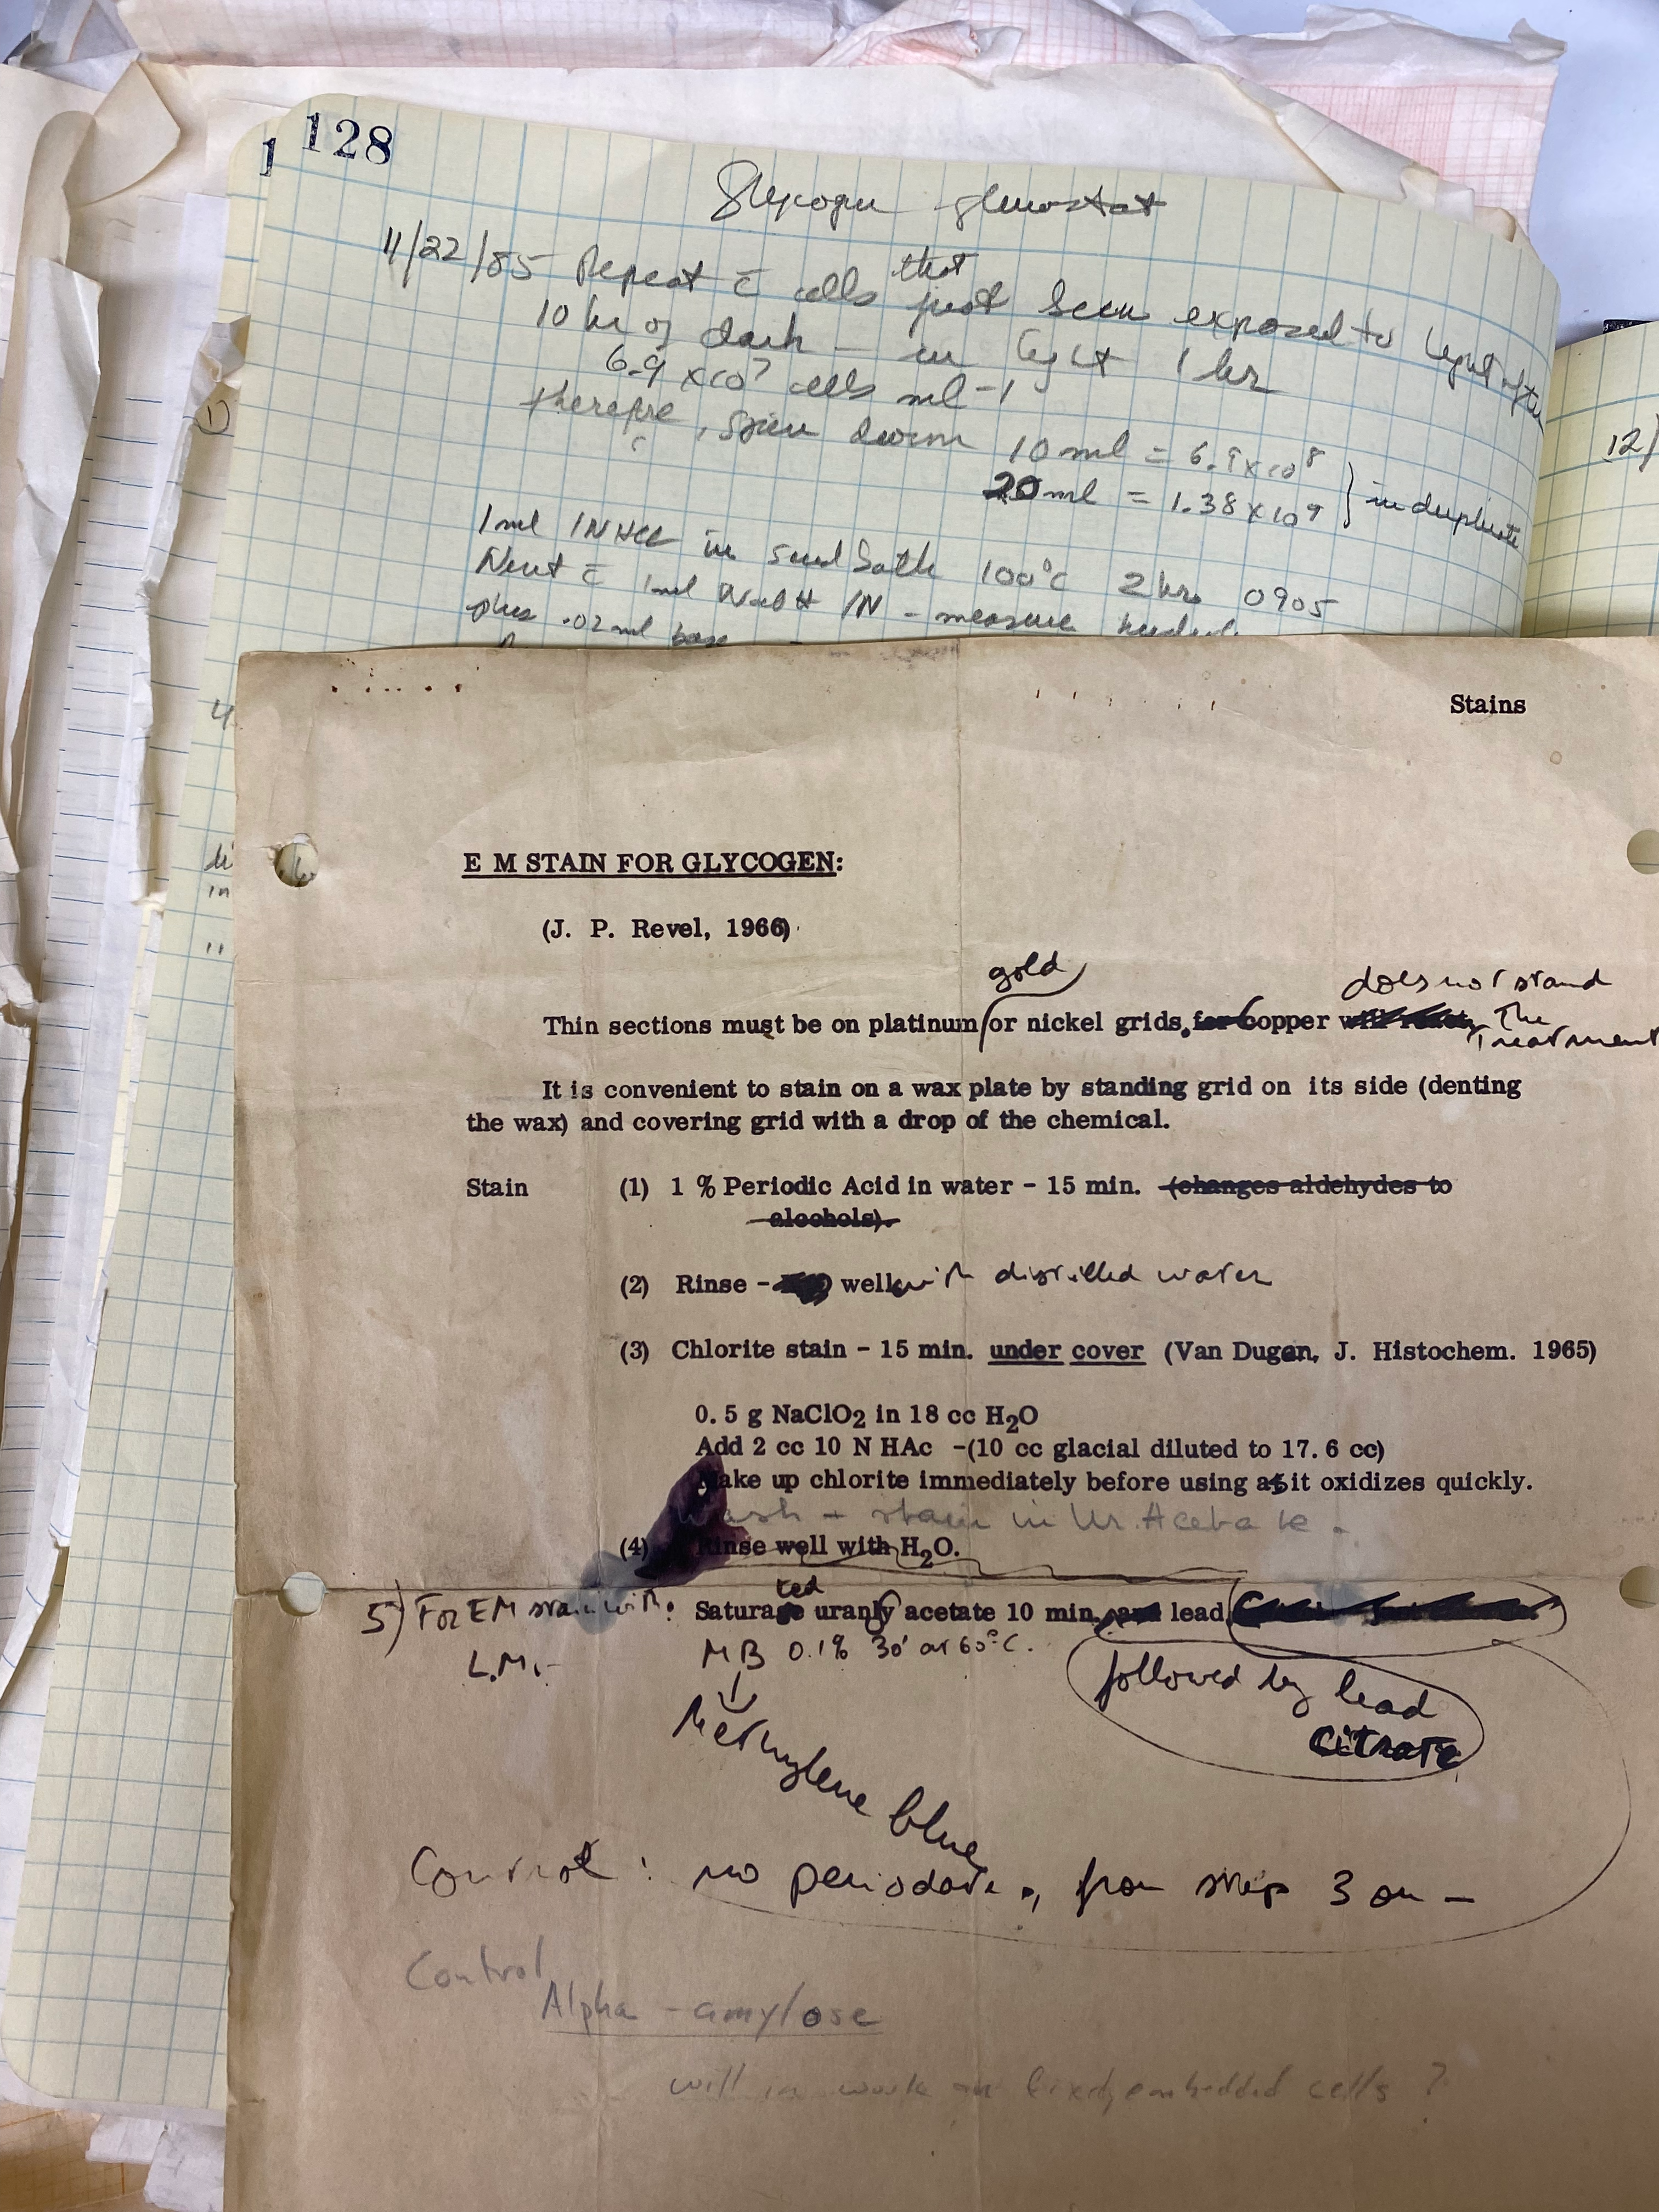 1
128
Glycogen glucostat
11/22/85 Repeat c̄ cells that just been exposed to light after
10 hr of dark – in light 1 hr
6.9 x 10⁷ cells ml⁻¹
therefore, spin down 10 ml = 6.9 x 10⁸
20 ml = 1.38 x 10⁹
} in duplicate
1 ml 1N HCl in sand bath 100°C 2 hrs 0905
Neut c̄ 1ml NaOH 1N - measure needed
plus .02 ml base
12/
1)
Stains
E M STAIN FOR GLYCOGEN:
(J. P. Revel, 1966)
gold does not stand
Thin sections must be on platinum or nickel grids, for Copper will react, The
Treatment
It is convenient to stain on a wax plate by standing grid on its side (denting
the wax) and covering grid with a drop of the chemical.
Stain (1) 1 % Periodic Acid in water - 15 min. (changes aldehydes to
alcohols).
(2) Rinse - well with distilled water
(3) Chlorite stain - 15 min. under cover (Van Dugan, J. Histochem. 1965)
0.5 g NaClO₂ in 18 cc H₂O
Add 2 cc 10 N HAc -(10 cc glacial diluted to 17.6 cc)
Make up chlorite immediately before using as it oxidizes quickly.
Wash + stain in Ur. Acetate.
(4) Rinse well with H₂O.
5) For EM stain with: Saturated uranly acetate 10 min, and lead
L.M.- MB 0.1% 30' at 60°C.
followed by lead
citrate
Methylene blue
Control: no periodate, from step 3 on –
Control
Alpha - amylose
will in work on fixed, embedded cells ?